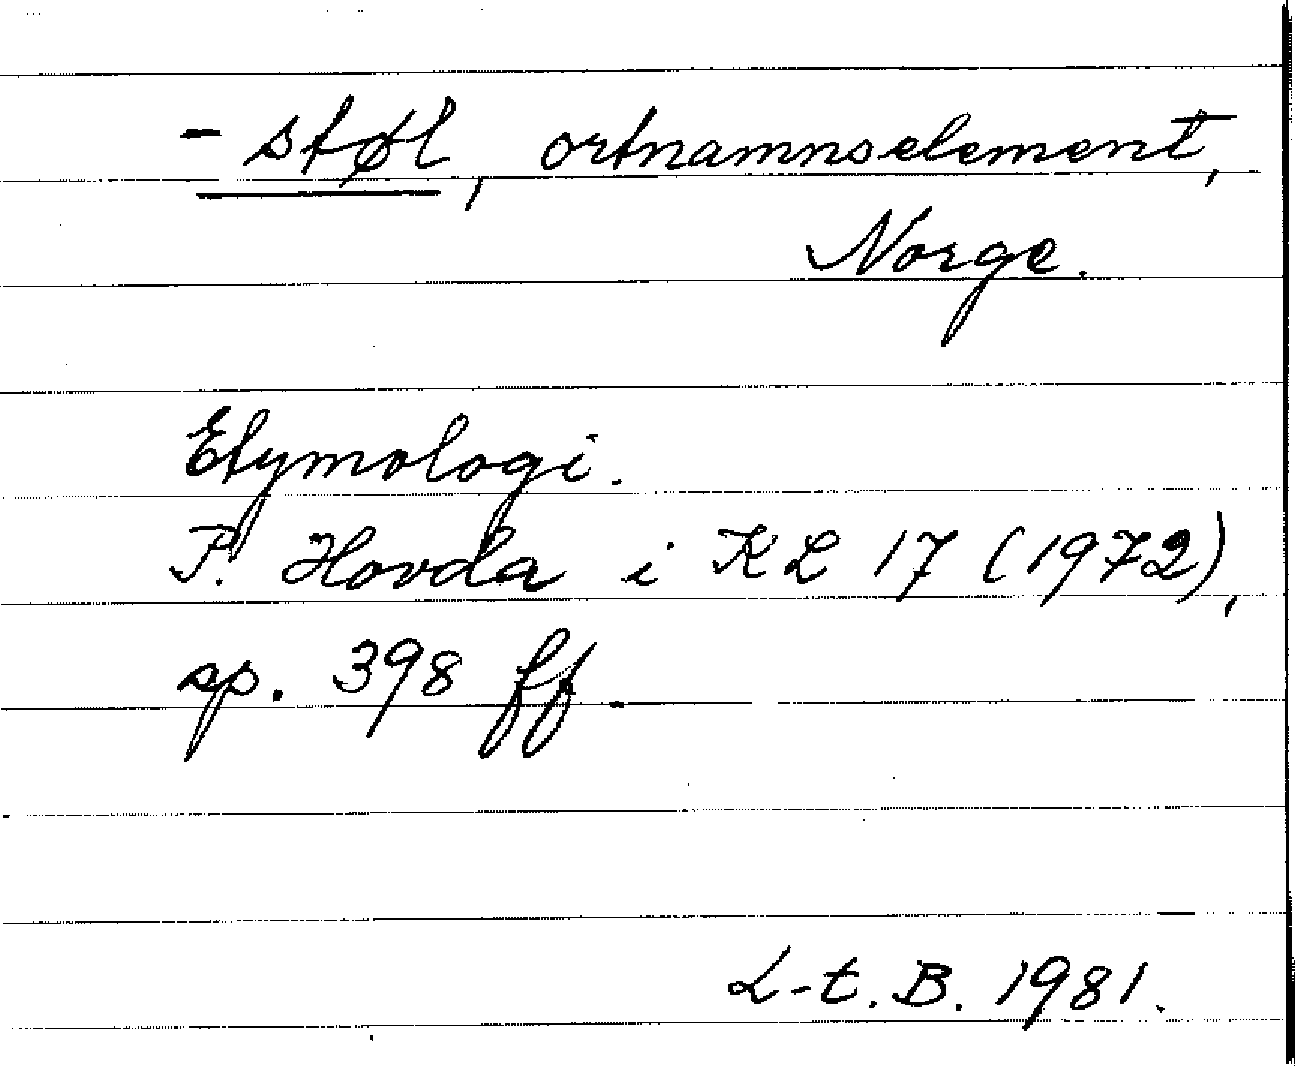 - støl, ortnamnselement,
Norge.
Etymologi.
P. Hovda i KL 17 (1972),
sp. 398 ff.
L-t. B. 1981.